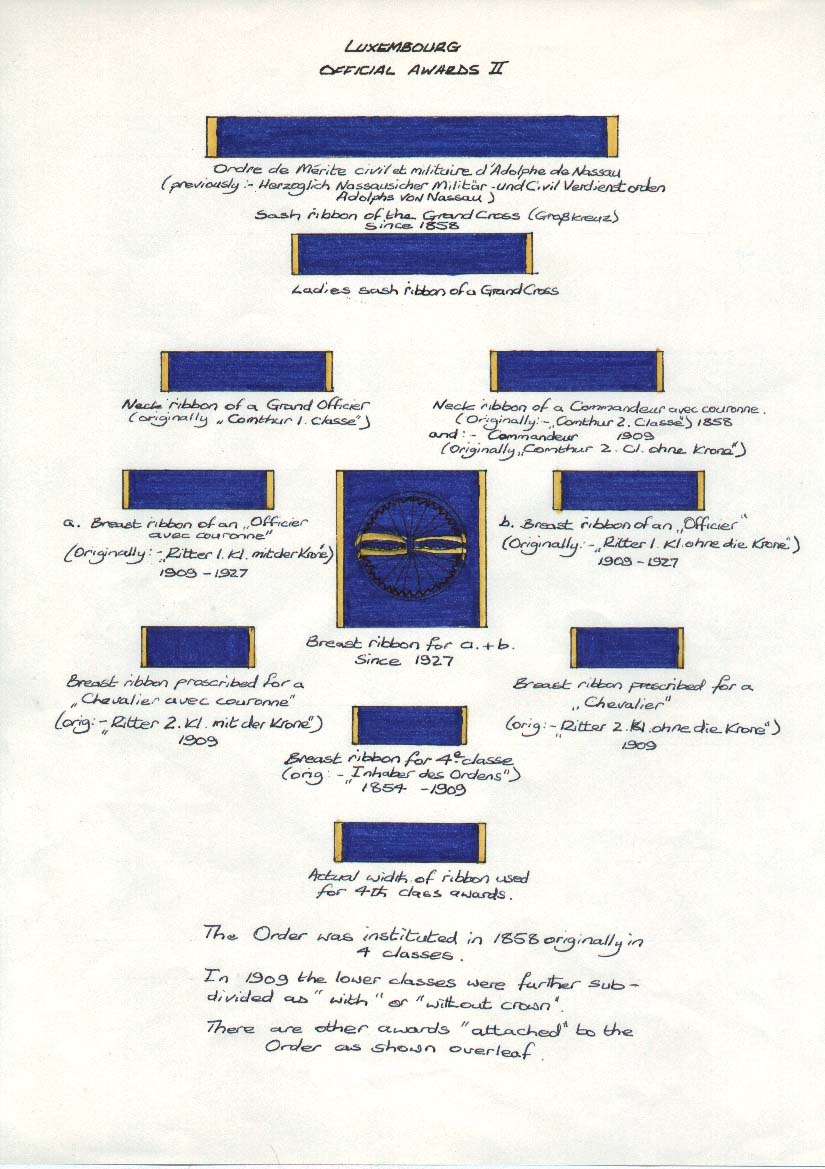 LUXEMBOURG
OFFICIAL AWARDS II
Ordre de Mérite civil et militaire d'Adolphe de Nassau
(previously:- Herzoglich Nassausicher Militär-und Civil Verdienstorden
Adolphs von Nassau)
Sash ribbon of the Grand Cross (Großkreuz)
Since 1858
Ladies sash ribbon of a Grand Cross
Neck ribbon of a Grand Officier
(originally „Comthur 1. Classe")
Neck ribbon of a Commandeur avec couronne.
(Originally:- „Comthur 2. Classe") 1858
and:- Commandeur 1909
(Originally „Comthur 2. Cl. ohne Krone")
a. Breast ribbon of an „Officier
avec couronne"
(Originally:- „Ritter 1. Kl. mit der Krone")
1909-1927
b. Breast ribbon of an „Officier"
(Originally:- „Ritter 1. Kl. ohne die Krone")
1909-1927
Breast ribbon for a.+b.
Since 1927
Breast ribbon prescribed for a
„Chevalier avec couronne"
(orig:- „Ritter 2. Kl. mit der Krone")
1909
Breast ribbon prescribed for a
„Chevalier"
(orig:- „Ritter 2. Kl. ohne die Krone")
1909
Breast ribbon for 4e classe
(orig:- „Inhaber des Ordens")
1854 -1909
Actual width of ribbon used
for 4th class awards.
The Order was instituted in 1858 originally in
4 classes.
In 1909 the lower classes were further sub-
divided as "with" or "without crown".
There are other awards "attached" to the
Order as shown overleaf.